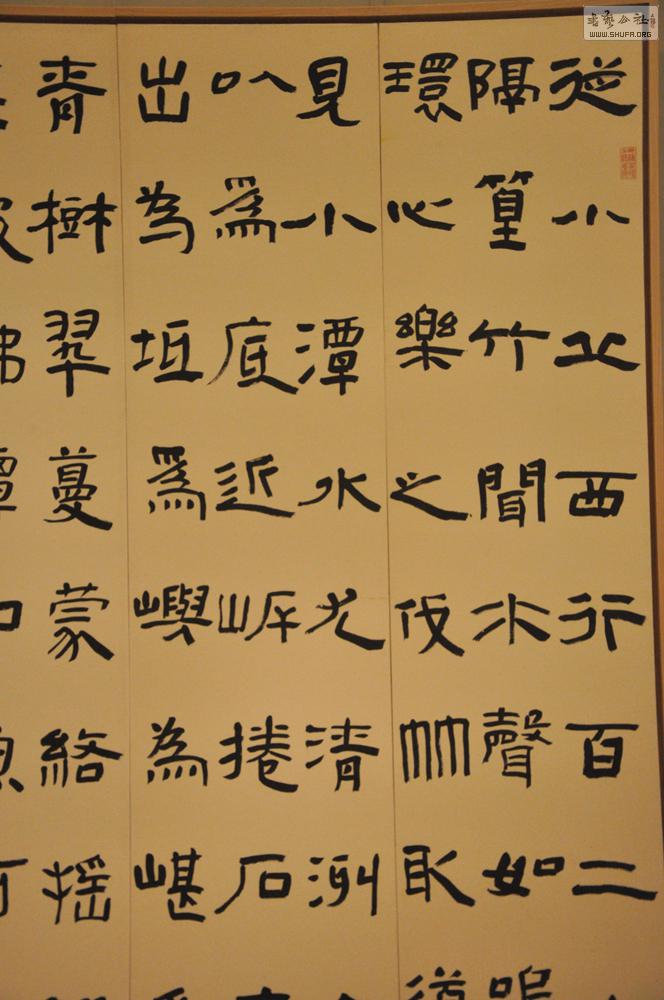 從小丘西行百二
隔篁竹聞水聲如鳴
環心樂之伐竹取道
見小潭水尤清洌
以爲底近岸捲石
出為坻爲嶼為嵁
青樹翠蔓蒙絡摇
书艺公社
WWW.SHUFA.ORG